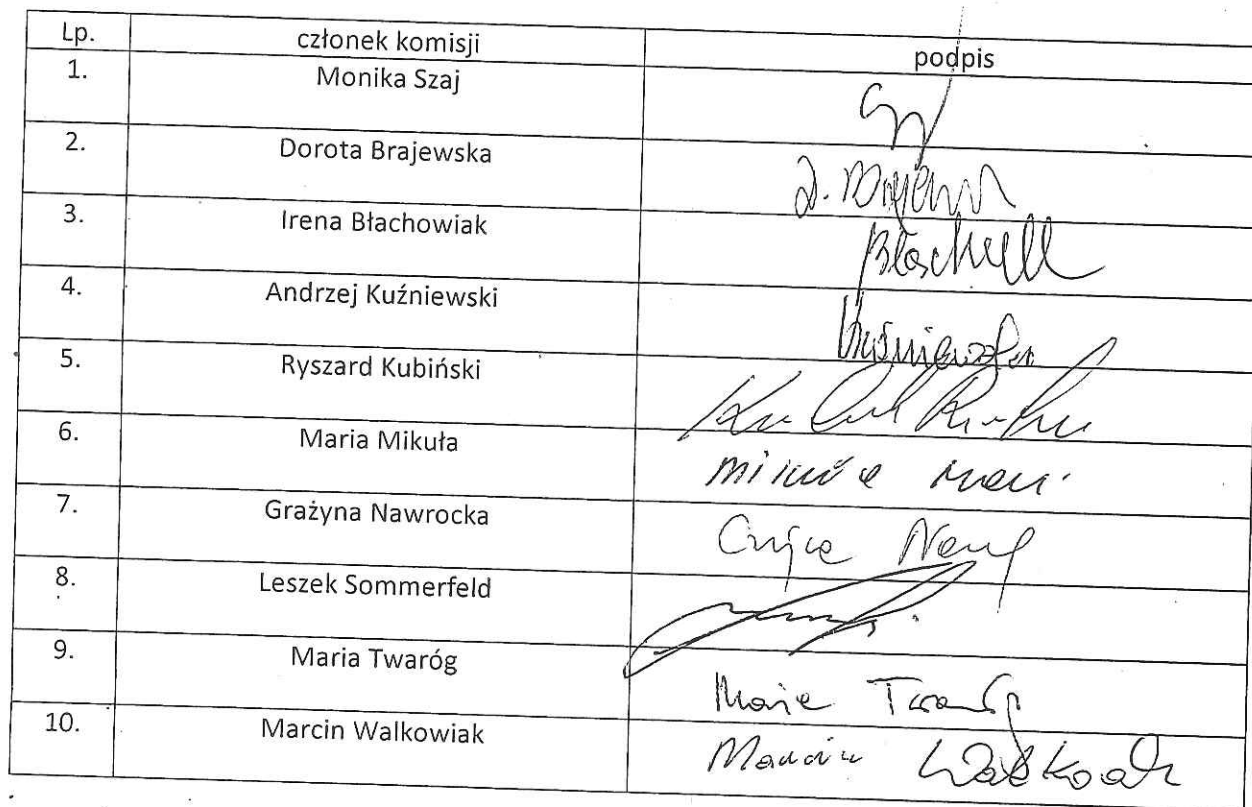 Lp. członek komisji podpis
1. Monika Szaj
2. Dorota Brajewska
3. Irena Błachowiak
4. Andrzej Kuźniewski
5. Ryszard Kubiński
6. Maria Mikuła
7. Grażyna Nawrocka
8. Leszek Sommerfeld
9. Maria Twaróg Maria Twaróg
10. Marcin Walkowiak Marcin